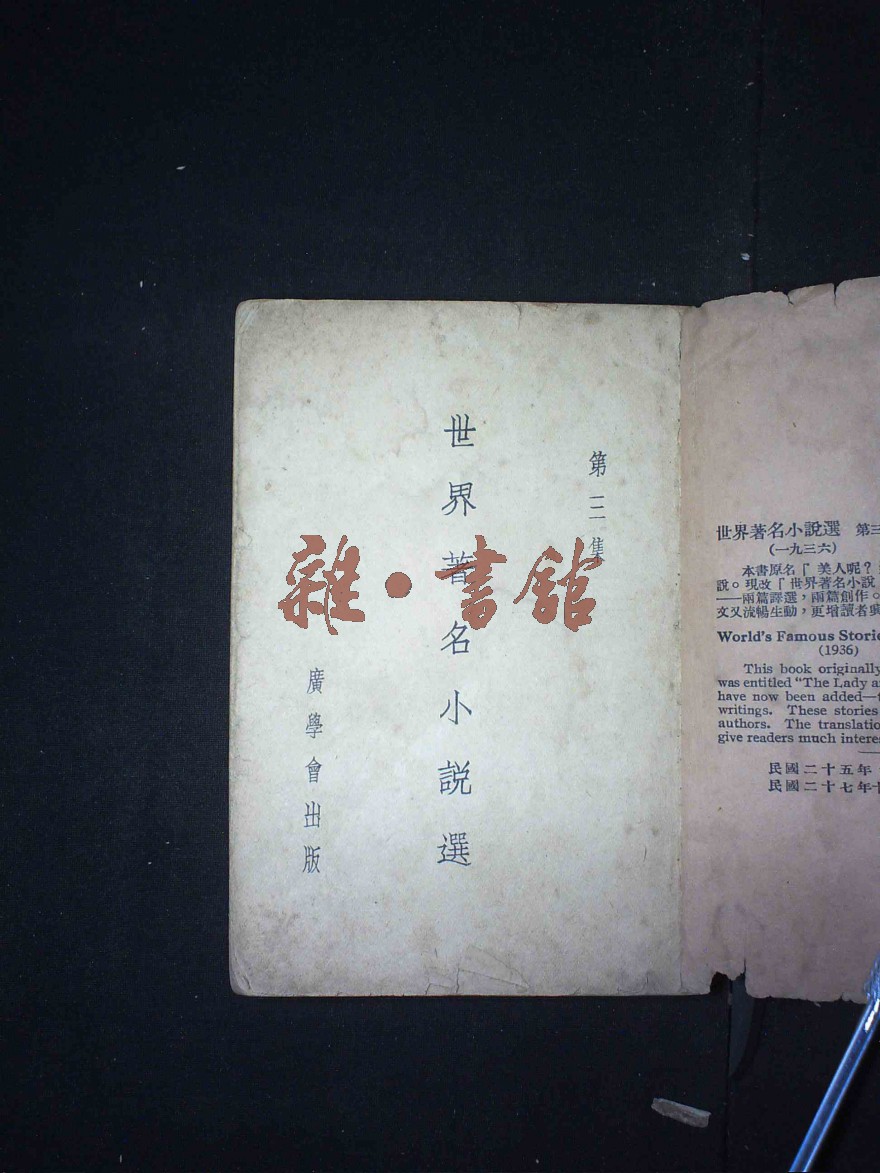 第三集
世界著名小説選
廣學會出版
雜·書館
世界著名小說選 第三
(一九三六)
本書原名『美人呢？
說。現改『世界著名小說
——兩篇譯選，兩篇創作。
文又流暢生動，更增讀者與
World's Famous Storie
(1936)
This book originally
was entitled "The Lady a
have now been added—t
writings. These stories
authors. The translatio
give readers much interes
民國二十五年
民國二十七年十